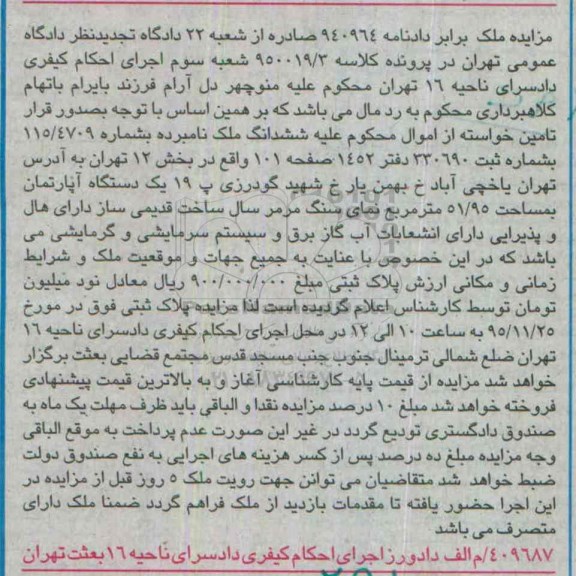 مزایده ملک برابر دادنامه ۹۴۰۹۶۴ صادره از شعبه ۲۲ دادگاه تجدیدنظر دادگاه
عمومی تهران در پرونده کلاسه ۹۵۰۰۱۹/۳ شعبه سوم اجرای احکام کیفری
دادسرای ناحیه ۱۶ تهران محکوم علیه منوچهر دل آرام فرزند بایرام باتهام
کلاهبرداری محکوم به رد مال می باشد که بر همین اساس با توجه بصدور قرار
تامین خواسته از اموال محکوم علیه ششدانگ ملک نامبرده بشماره ۱۱۵/۴۷۰۹
بشماره ثبت ۳۳۰۶۹۰ دفتر ۱۴۵۲ صفحه ۱۰۱ واقع در بخش ۱۲ تهران به آدرس
تهران یاخچی آباد خ بهمن یار خ شهید گودرزی پ ۱۹ یک دستگاه آپارتمان
بمساحت ۵۱/۹۵ مترمربع نمای سنگ مرمر سال ساخت قدیمی ساز دارای هال
و پذیرایی دارای انشعابات آب گاز برق و سیستم سرمایشی و گرمایشی می
باشد که در این خصوص با عنایت به جمیع جهات و موقعیت ملک و شرایط
زمانی و مکانی ارزش پلاک ثبتی مبلغ ۹۰۰/۰۰۰/۰۰۰ ریال معادل نود میلیون
تومان توسط کارشناس اعلام گردیده است لذا مزایده پلاک ثبتی فوق در مورخ
۹۵/۱۱/۲۵ به ساعت ۱۰ الی ۱۲ در محل اجرای احکام کیفری دادسرای ناحیه ۱۶
تهران ضلع شمالی ترمینال جنوب جنب مسجد قدس مجتمع قضایی بعثت برگزار
خواهد شد مزایده از قیمت پایه کارشناسی آغاز و به بالاترین قیمت پیشنهادی
فروخته خواهد شد مبلغ ۱۰ درصد مزایده نقدا و الباقی باید ظرف مهلت یک ماه به
صندوق دادگستری تودیع گردد در غیر این صورت عدم پرداخت به موقع الباقی
وجه مزایده مبلغ ده درصد پس از کسر هزینه های اجرایی به نفع صندوق دولت
ضبط خواهد شد متقاضیان می توانن جهت رویت ملک ۵ روز قبل از مزایده در
این اجرا حضور یافته تا مقدمات بازدید از ملک فراهم گردد ضمنا ملک دارای
متصرف می باشد
۴۰۹۶۸۷/م الف دادورز اجرای احکام کیفری دادسرای ناحیه ۱۶ بعثت تهران